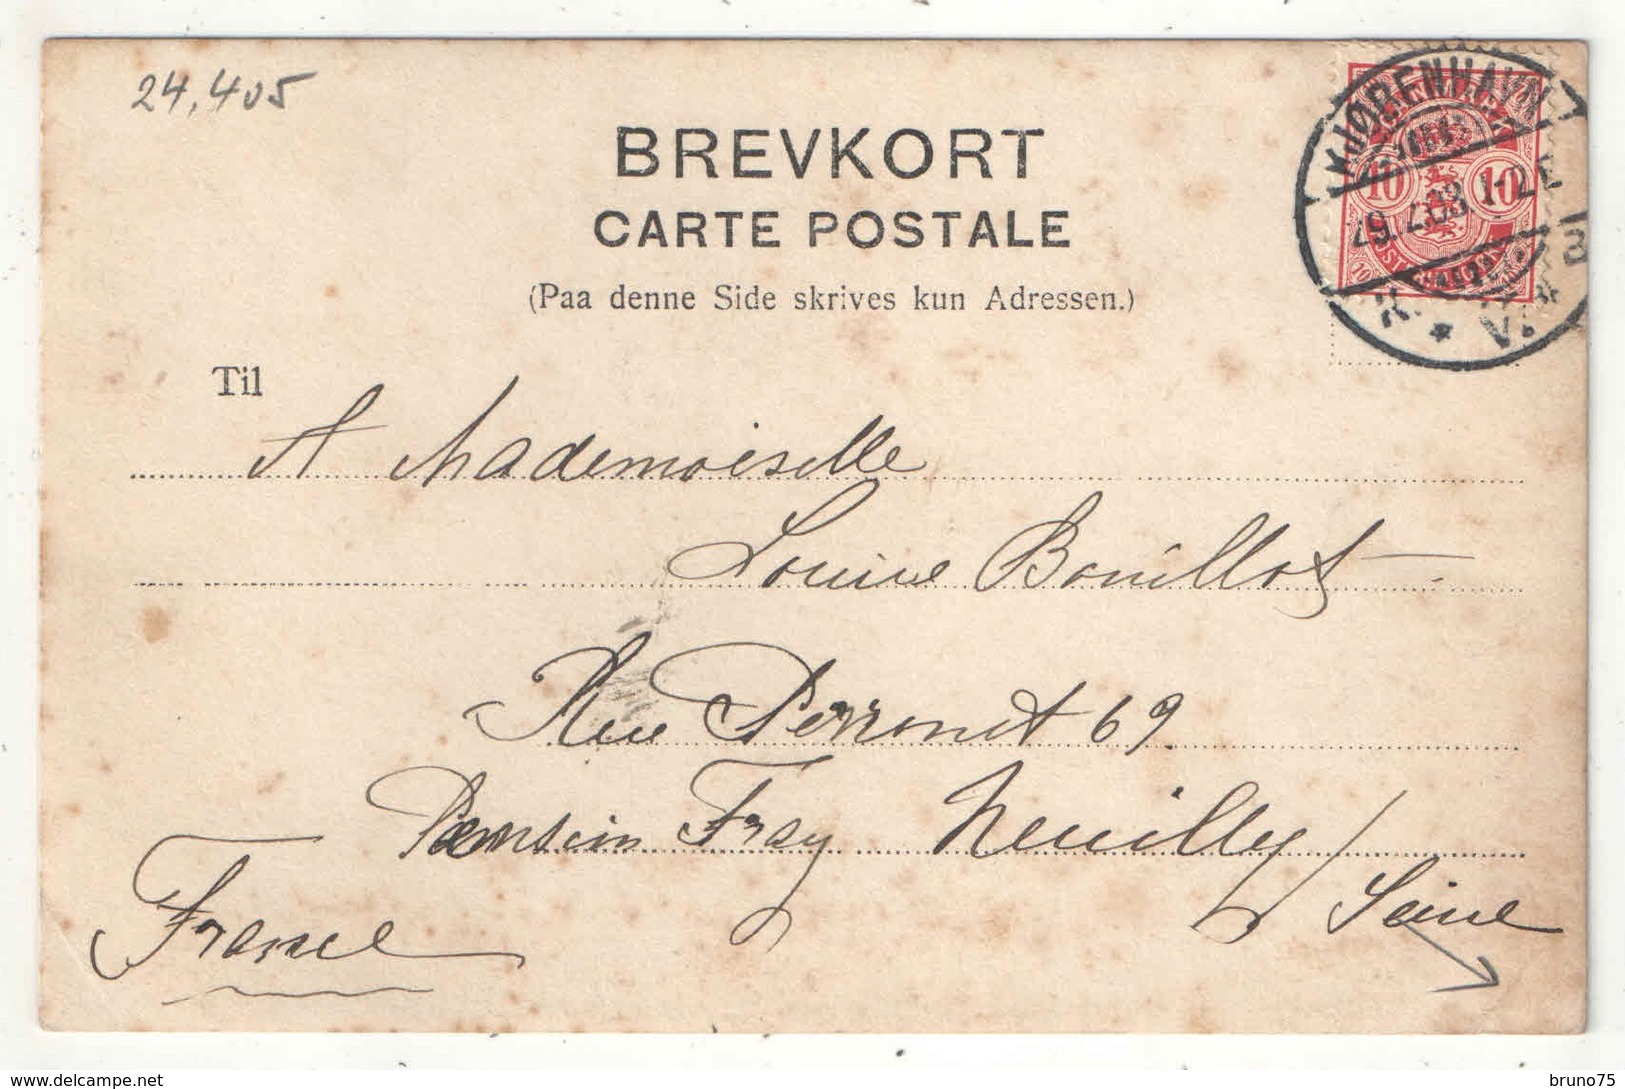 24,405
BREVKORT
CARTE POSTALE
(Paa denne Side skrives kun Adressen.)
KJØBENHAVN
10 10
1-2E
B
K. * V.
Til
A Mademoiselle
Louise Bouillot
Rue Perronet 69
Pension Fray Neuilly/
Seine
France
bruno75